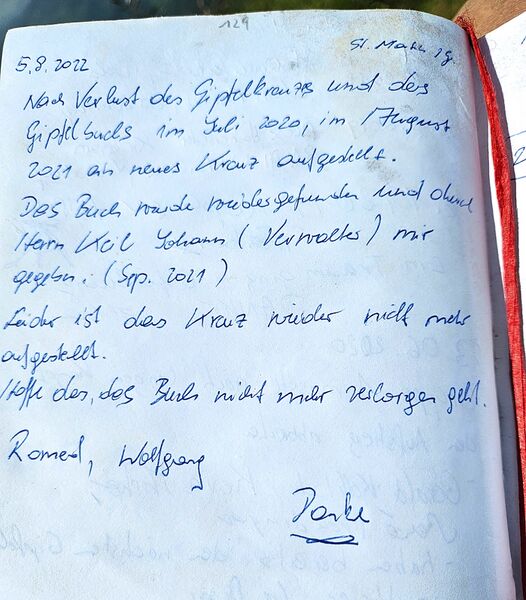 129
St. Mark ig.
5.8.2022
Nach Verlust des Gipfelkreuzes und des
Gipfelbuchs im Juli 2020, im August
2021 ein neues Kreuz aufgestellt.
Das Buch wurde wiedergefunden und durch
Herrn Keil Johann (Verwalter) mir
gegeben. (Sep. 2021)
Leider ist das Kreuz wieder nicht mehr
aufgestellt.
Hoffe das, das Buch nicht mehr verlorgen geht.
Romed, Wolfgang
Danke